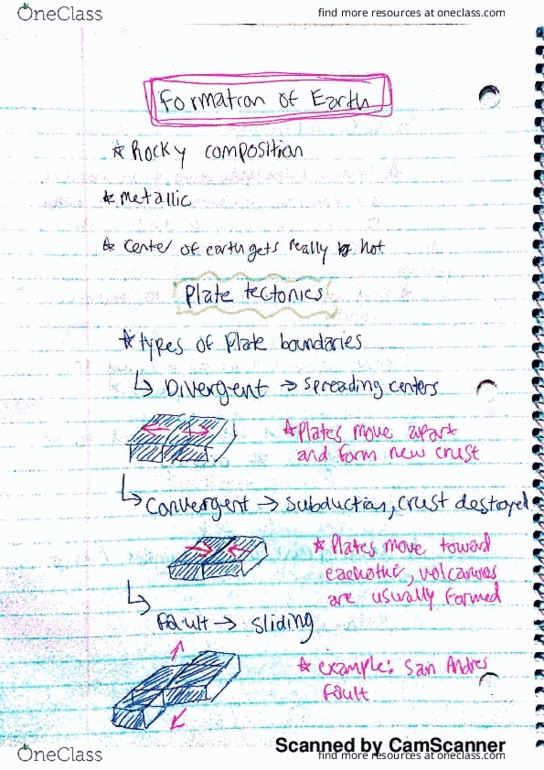 OneClass
find more resources at oneclass.com
Formation of Earth
* Rocky composition
* metallic
* center of earth gets really hot
Plate tectonics
* types of Plate boundaries
↳ Divergent → spreading centers
* Plates move apart
and form new crust
↳ Convergent → subduction, crust destroyed
* Plates move toward
eachother, volcanoes
are usually formed
↳ Fault → sliding
* example: San Andres
Fault
Scanned by CamScanner
OneClass
find more resources at oneclass.com